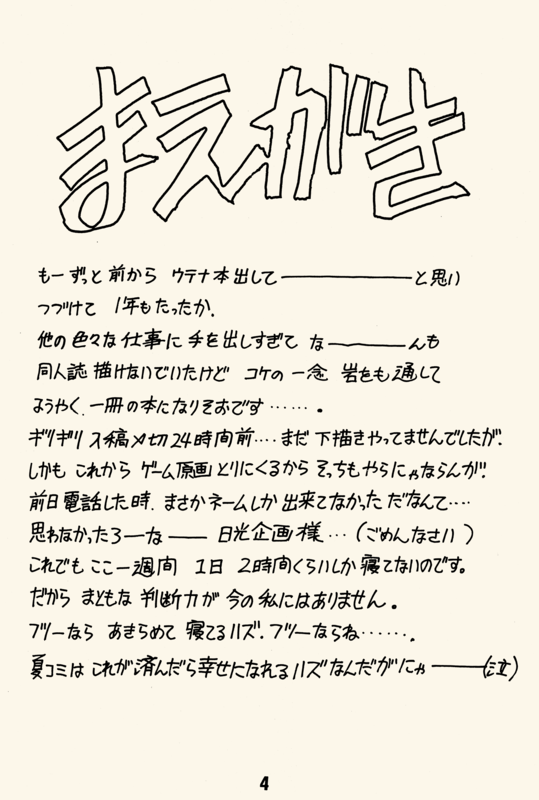 まえがき
もーずっと前から ウテナ本出して――――――と思い
つづけて 1年もたったか.
他の色々な仕事に手を出しすぎて な―――んも
同人誌描けないでいたけど コケの一念 岩をも通して
ようやく.一冊の本になりそおです……。
ギリギリ 入稿〆切24時間前‥‥まだ下描きやってませんでしたが.
しかも これから ゲーム原画とりにくるから そっちもやらにゃならんが.
前日電話した時.まさかネームしか出来てなかっただなんて‥‥
思わなかったろーな―― 日光企画様…(ごめんなさい)
これでもここ一週間 1日 2時間くらいしか寝てないのです。
だから まともな判断力が今の私にはありません。
フツーなら あきらめて 寝てるハズ.フツーならね…….
夏コミは これが済んだら幸せになれるハズなんだがにゃ――(泣)
4